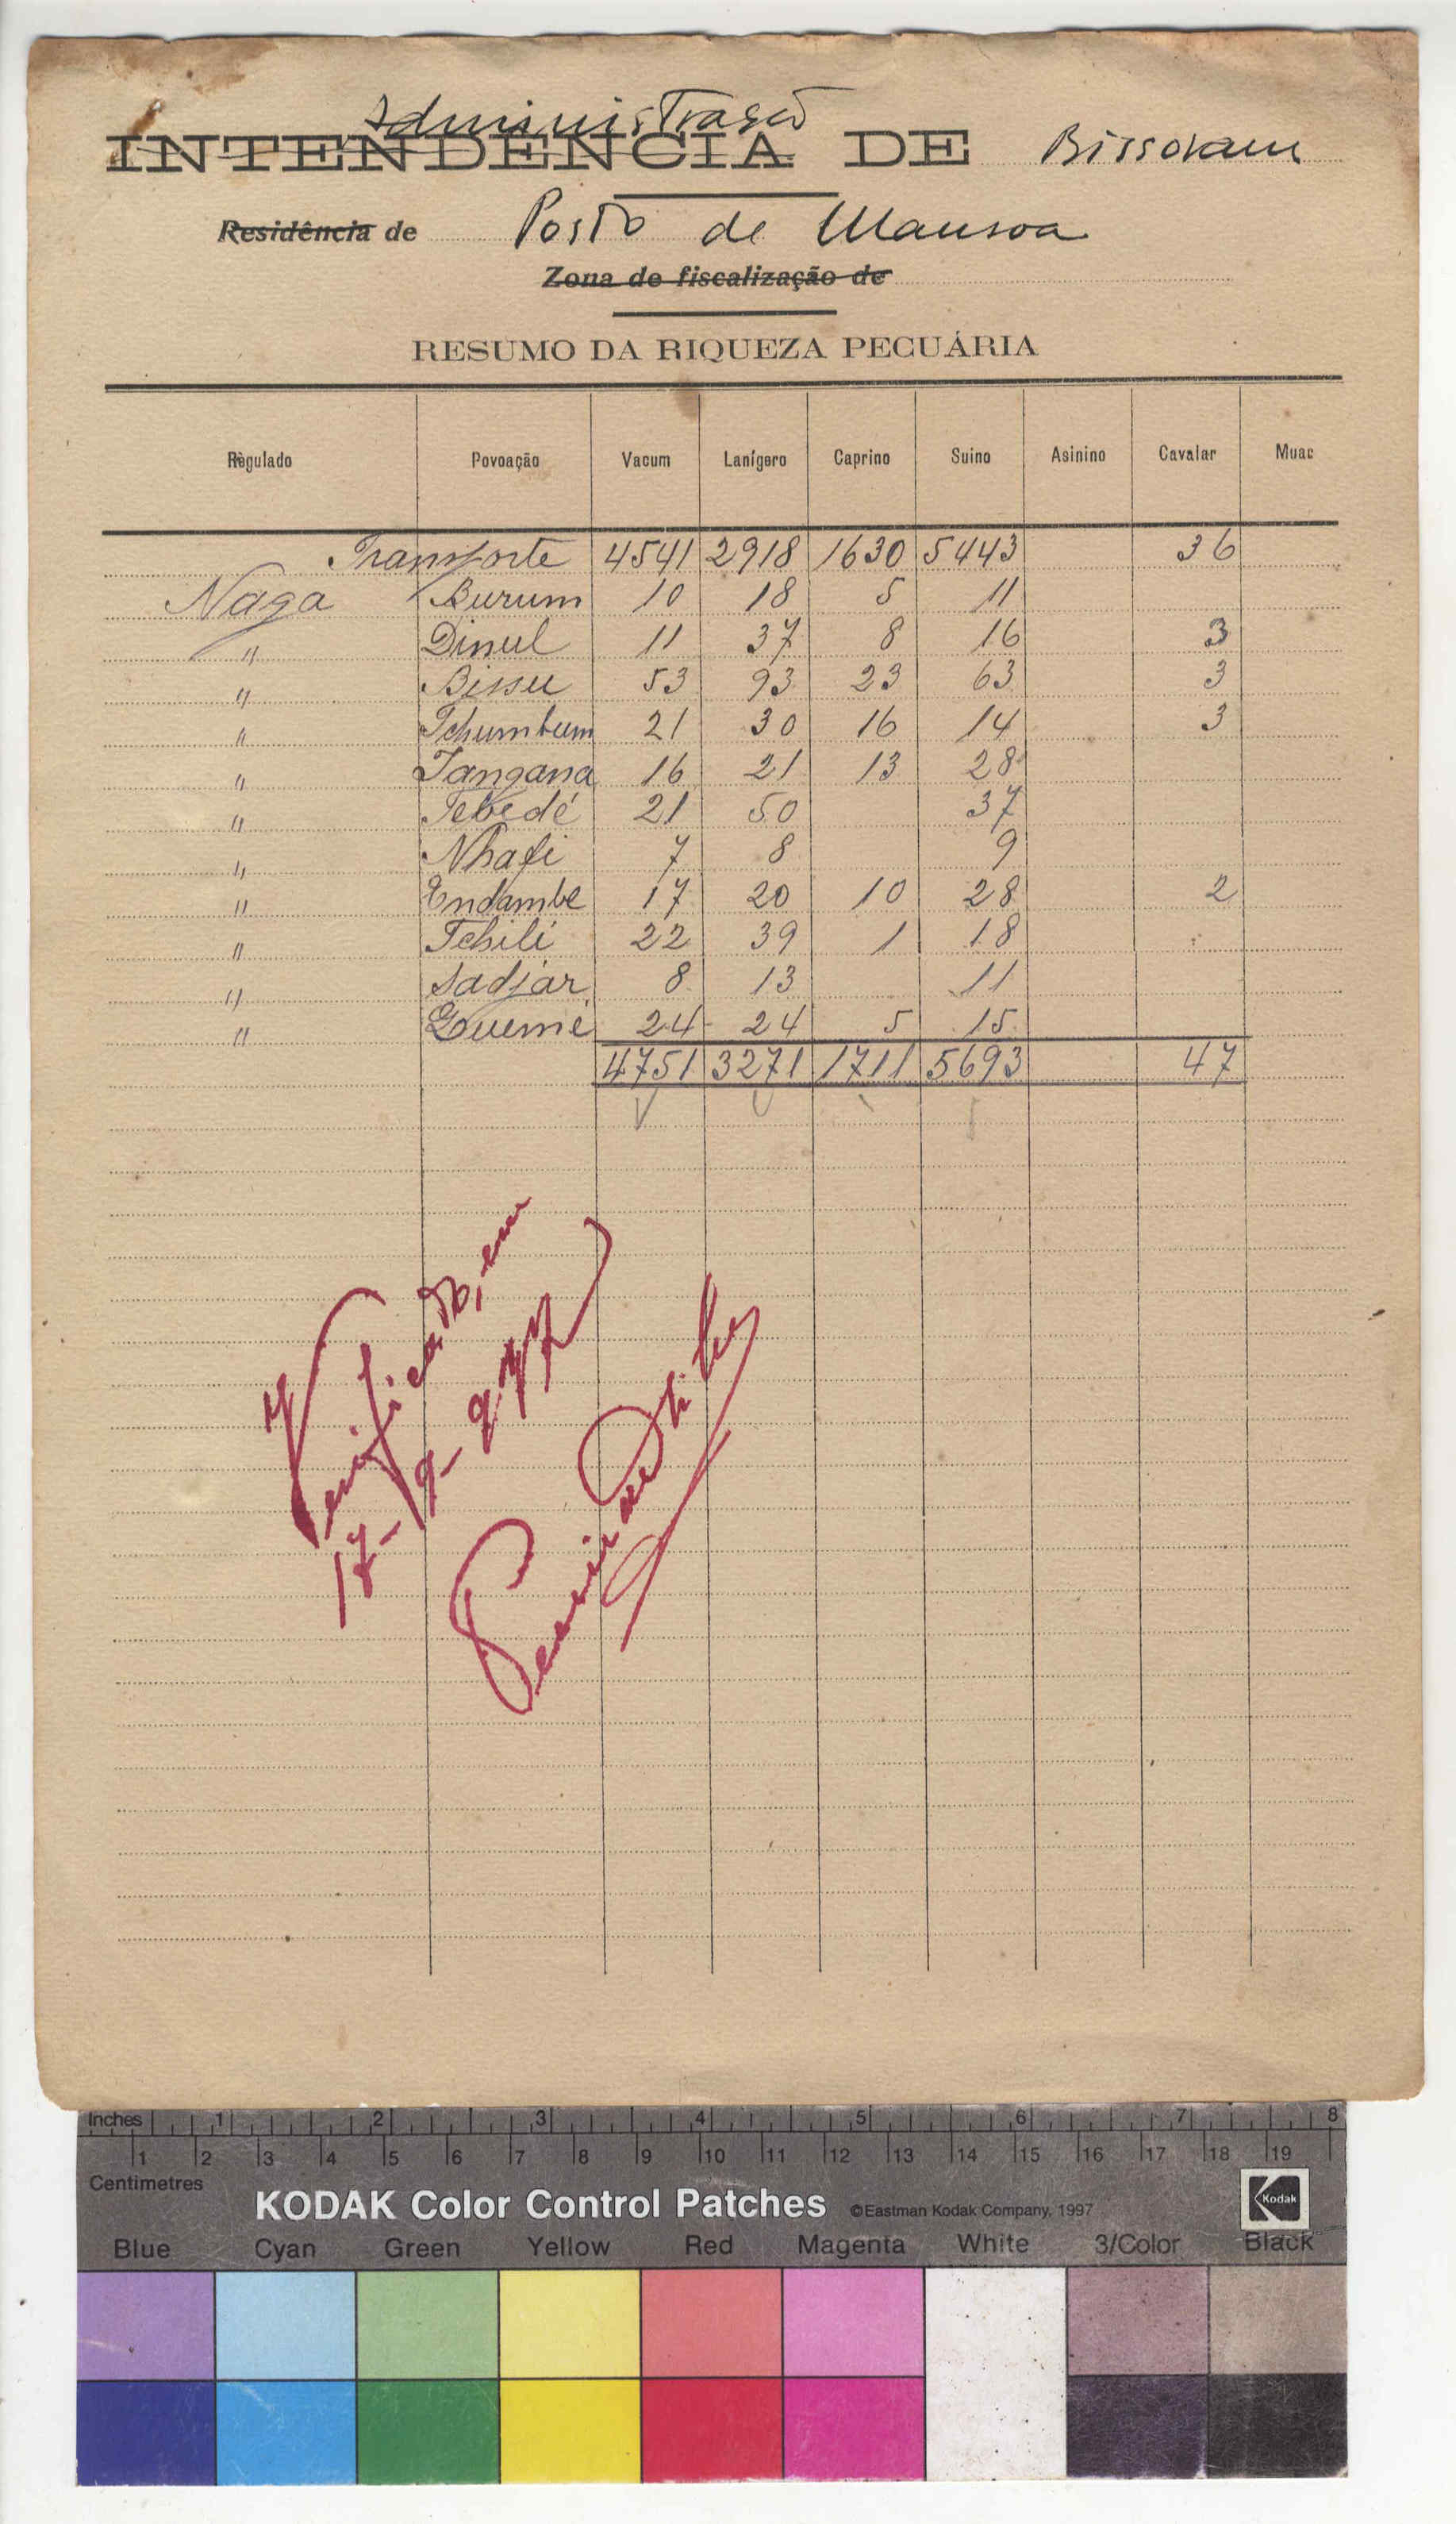 Administração
INTENDENCIA DE Bissoram
Residência de Posto de Mansoa
Zona de fiscalização de
RESUMO DA RIQUEZA PECUÁRIA
Règulado Povoação Vacum Lanígero Caprino Suino Asinino Cavalar Muar
Transporte 4541 2918 1630 5443 36
Naga Burum 10 18 5 11
" Dinul 11 37 8 16 3
" Bissu 53 93 23 63 3
" Tchumbum 21 30 16 14 3
" Tangana 16 21 13 28
" Tebedé 21 50 37
" Nhafi 7 8 9
" Endambe 17 20 10 28 2
" Tchili 22 39 1 18
" Sadjar 8 13 11
" Guemé 24 24 5 15
4751 3271 1711 5693 47
Verificado, em
17-9-947
Inches 1 2 3 4 5 6 7 8
1 2 3 4 5 6 7 8 9 10 11 12 13 14 15 16 17 18 19
Centimetres
KODAK Color Control Patches ©Eastman Kodak Company, 1997 Kodak
Blue Cyan Green Yellow Red Magenta White 3/Color Black